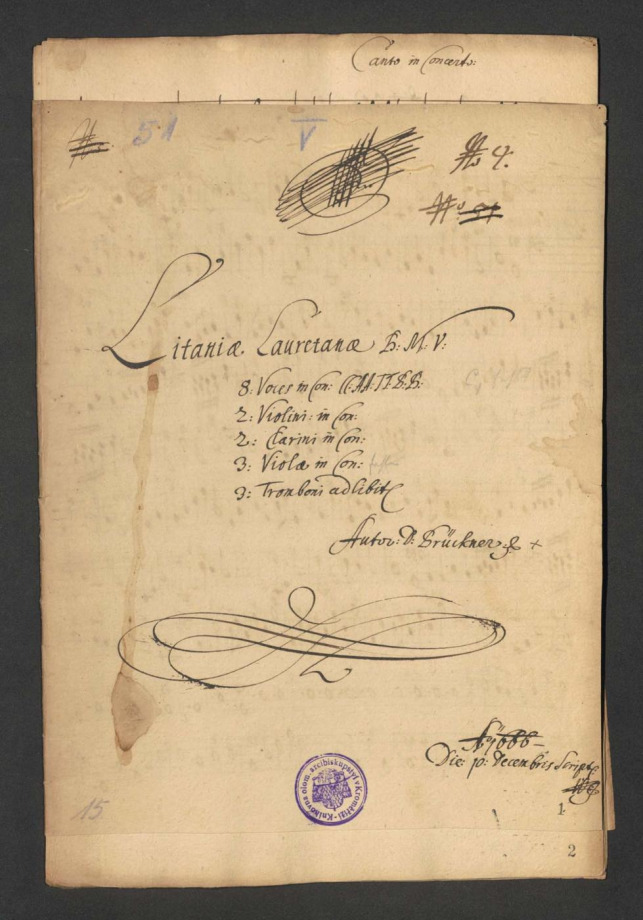 Canto in Concerto:
51
V
No 4.
No 51
Litaniæ Lauretanæ B: M: V:
8: Voces in Con: CC: AA: TT: BB:
2: Violini: in Con:
2: Clarini in Con:
3: Violæ in Con:
3: Tromboni ad libit
Autor: D: Brückner
Ao 1666
Die: 10: Decembris Script
Knihovna olom. arcibiskupství v Kroměříži
15
1
2